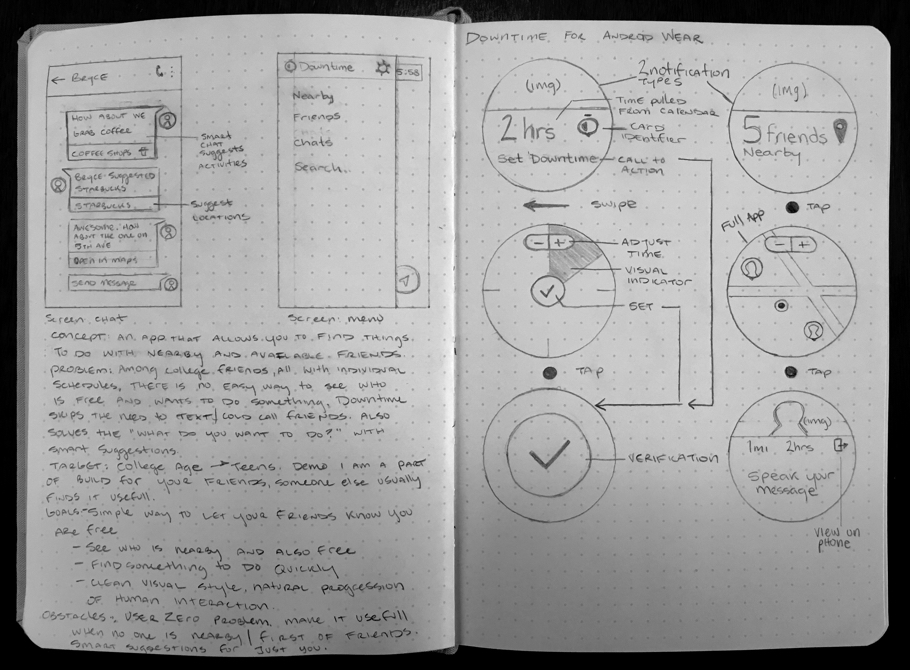 ← BRYCE
HOW ABOUT WE
GRAB COFFEE
COFFEE SHOPS
SMART
CHAT
SUGGESTS
ACTIVITIES
BRYCE SUGGESTED
STARBUCKS
STARBUCKS
SUGGEST
LOCATIONS
AWESOME, HOW
ABOUT THE ONE ON
5TH AVE
OPEN IN MAPS
SEND MESSAGE
Screen: chat
Downtime
5:58
Nearby
Friends
Chats
Search..
Screen: menu
CONCEPT: AN APP THAT ALLOWS YOU TO FIND THINGS
TO DO WITH NEARBY AND AVAILABLE FRIENDS.
PROBLEM: AMONG COLLEGE FRIENDS, ALL WITH INDIVIDUAL
SCHEDULES, THERE IS NO EASY WAY TO SEE WHO
IS FREE AND WANTS TO DO SOMETHING. DOWNTIME
SKIPS THE NEED TO TEXT/COLD CALL FRIENDS. ALSO
SOLVES THE "WHAT DO YOU WANT TO DO?" WITH
SMART SUGGESTIONS.
TARGET: COLLEGE AGE → TEENS. DEMO I AM A PART
OF BUILD FOR YOUR FRIENDS, SOMEONE ELSE USUALLY
FINDS IT USEFULL.
GOALS - SIMPLE WAY TO LET YOUR FRIENDS KNOW YOU
ARE FREE
- SEE WHO IS NEARBY AND ALSO FREE
- FIND SOMETHING TO DO QUICKLY
- CLEAN VISUAL STYLE, NATURAL PROGRESSION
OF HUMAN INTERACTION.
OBSTACLES: USER ZERO PROBLEM, MAKE IT USEFULL
WHEN NO ONE IS NEARBY/FIRST OF FRIENDS.
SMART SUGGESTIONS FOR JUST YOU.
DOWNTIME FOR ANDROID WEAR
(img)
2 hrs
Set Downtime
2 notification
TYPES
TIME PULLED
FROM CALENDAR
CARD
IDENTIFIER
CALL TO
ACTION
← SWIPE
- +
ADJUST
TIME
VISUAL
INDICATOR
SET
TAP
VERIFICATION
(img)
5 friends
Nearby
TAP
FULL APP
- +
TAP
(img)
1mi 2hrs
Speak your
message
VIEW ON
PHONE